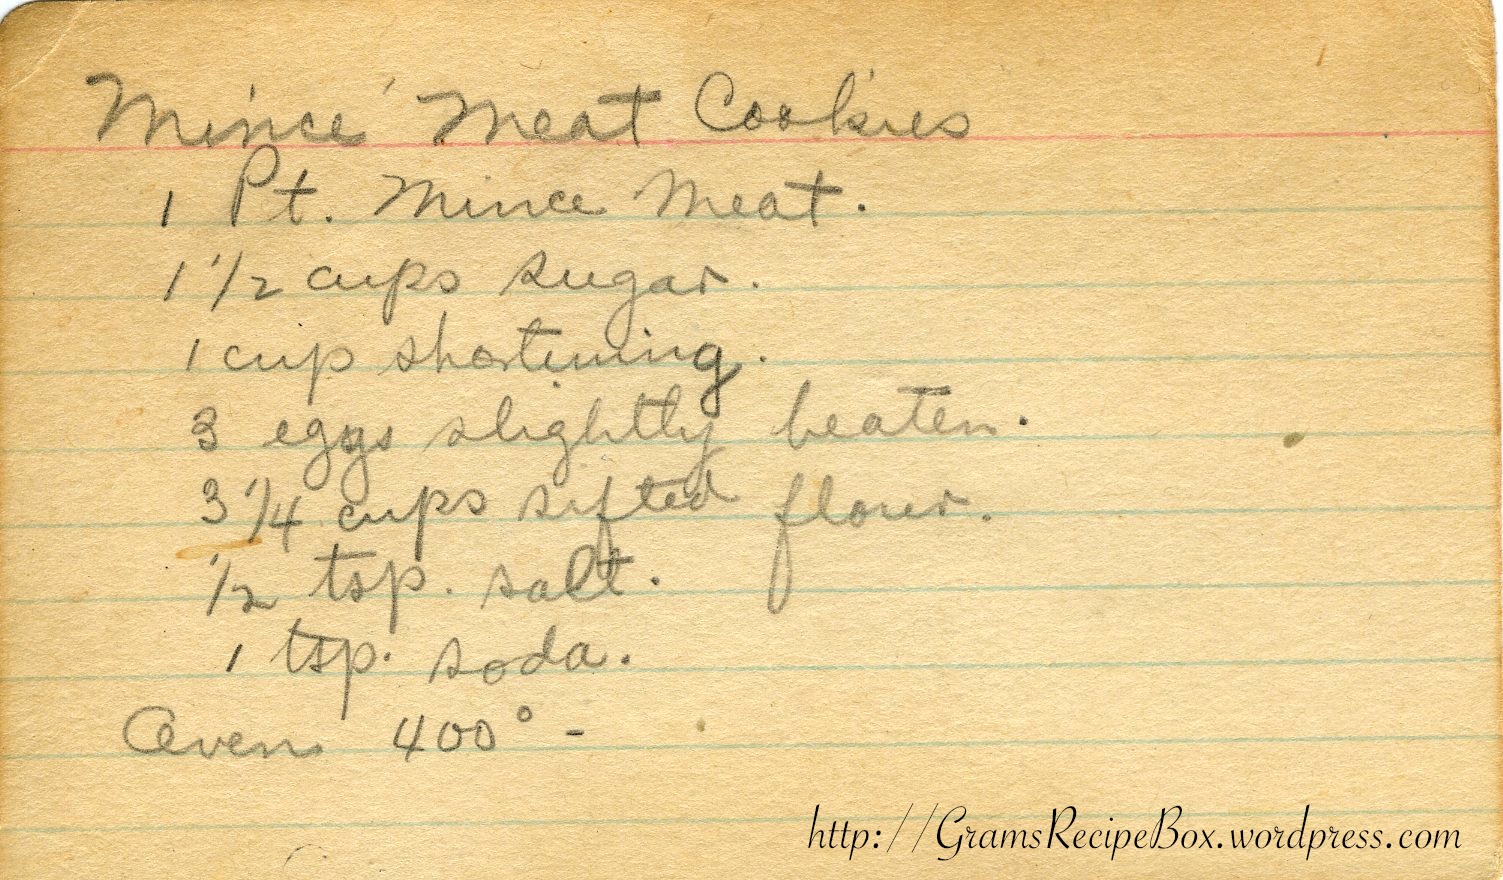 Mince Meat Cookies
1 Pt. Mince Meat.
1 1/2 cups sugar.
1 cup shortening.
3 eggs slightly beaten.
3 1/4 cups sifted flour.
1/2 tsp. salt.
1 tsp. soda.
Oven 400° -
http://GramsRecipeBox.wordpress.com